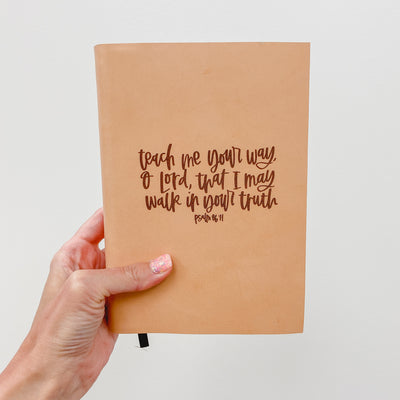 teach me your way,
O Lord, that I may
walk in your truth
psalm 86:11